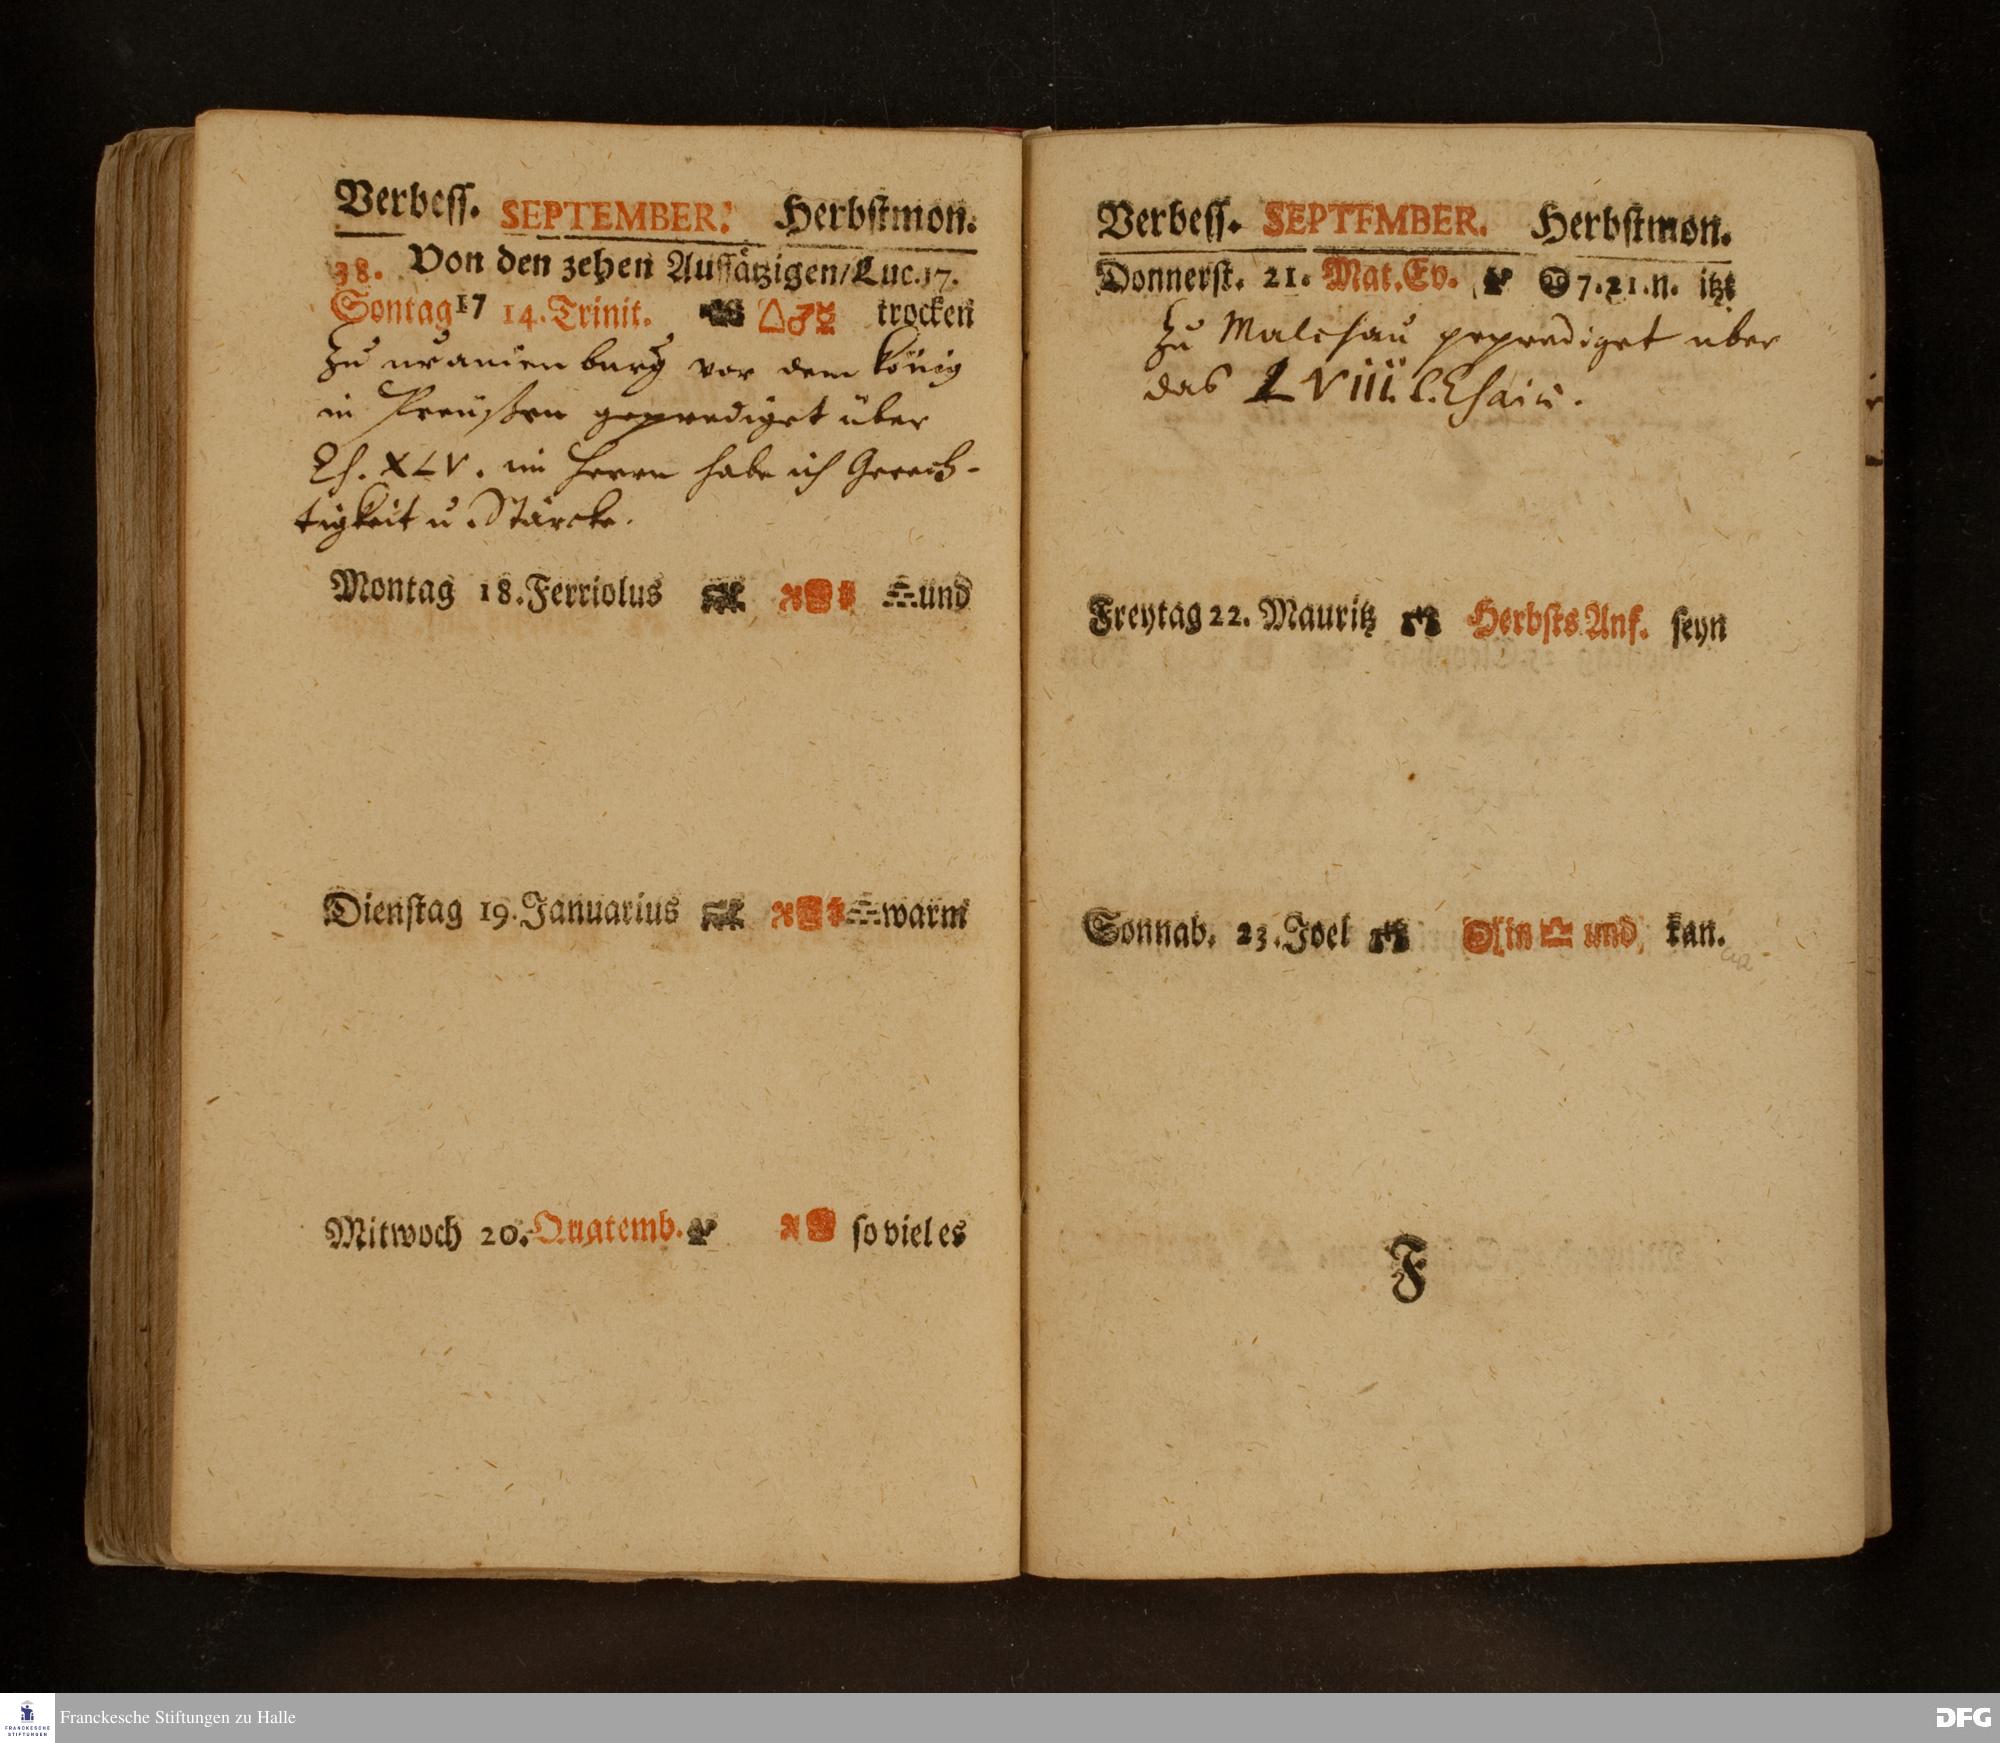 Verbess. SEPTEMBER. Herbstmon.
38. Von den zehen Aussätzigen/Luc.17.
Sontag 17 14. Trinit. △♂☿ trocken
Zu uranienburg vor dem König
in Preüßen geprediget über
Es. XLV. im Herrn habe ich Gerech-
tigkeit u. Stärcke.
Montag 18. Ferriolus und
Dienstag 19. Januarius warm
Mitwoch 20. Quatemb. so viel es
Verbess. SEPTEMBER. Herbstmon.
Donnerst. 21. Mat. Ev. 7.21.n. itzt
Zu Malchau geprediget über
das LVIII. C. Esaiæ.
Freytag 22. Mauritz Herbsts Anf. seyn
Sonnab. 23. Joel in ♎ und kan.
F
Franckesche Stiftungen zu Halle
FRANCKESCHE
STIFTUNGEN
DFG